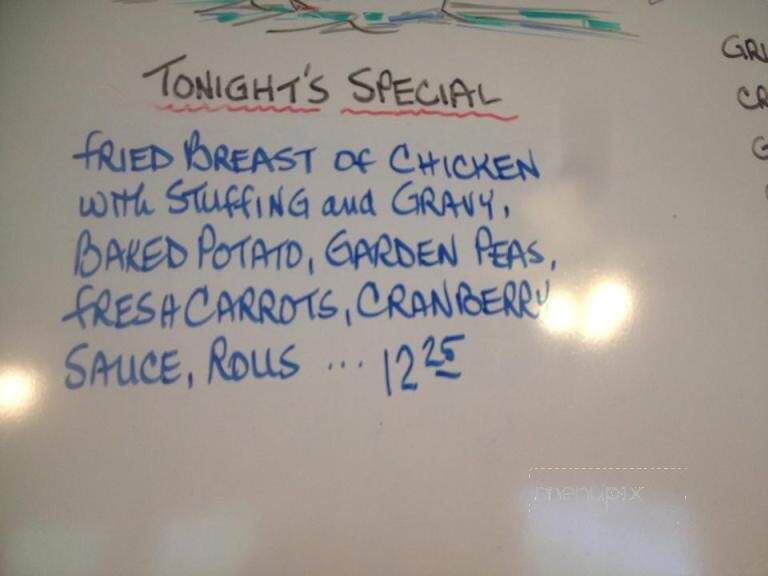 TONIGHT'S SPECIAL
FRIED BREAST OF CHICKEN
with STUFFING and GRAVY,
BAKED POTATO, GARDEN PEAS,
FRESH CARROTS, CRANBERRY
SAUCE, ROLLS ... 12 25
GRI
CR
G
menupix